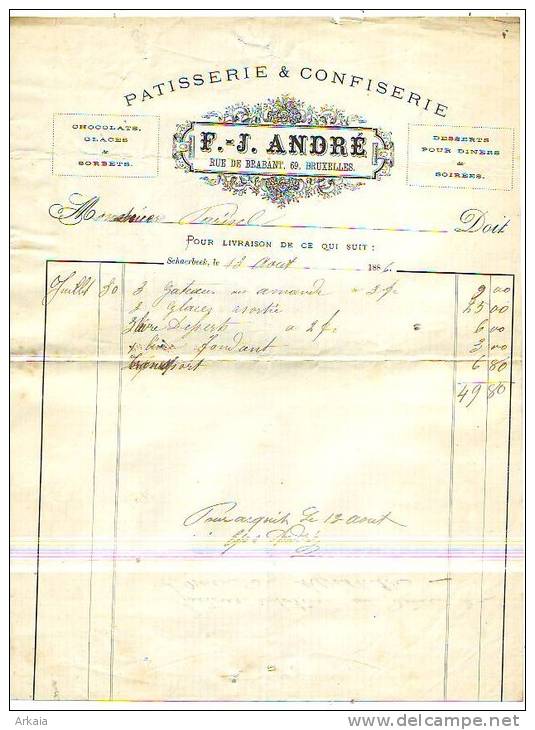 PATISSERIE & CONFISERIE
CHOCOLATS,
GLACES
&
SORBETS.
F.-J. ANDRÉ
RUE DE BRABANT, 69, BRUXELLES.
DESSERTS
POUR DINERS
&
SOIRÉES.
Doit
POUR LIVRAISON DE CE QUI SUIT :
Schaerbeek, le 13 Aout 1886.
Juillet 30 3 gateau amande a 3 fr 9 00
glaces 25 00
3 livre Desert a 2 fr 6 00
fondant 3 00
6 80
49 80
Pour acquit le 13 aout
Arkaia
www.delcampe.net